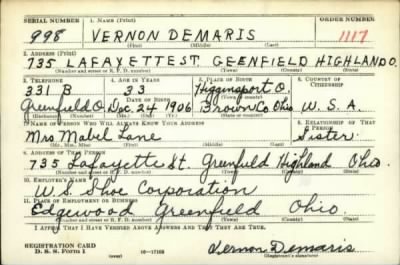 SERIAL NUMBER 1. NAME (Print) ORDER NUMBER
998 VERNON DEMARIS 1117
(First) (Middle) (Last)
2. ADDRESS (Print)
735 LAFAYETTE ST. GEENFIELD HIGHLAND O.
(Number and street or R. F. D. number) (Town) (County) (State)
3. TELEPHONE 4. AGE IN YEARS 5. PLACE OF BIRTH 6. COUNTRY OF CITIZENSHIP
331 B 33 Higginsport O.
Greenfield O. DATE OF BIRTH (Town or county)
Dec. 24 1906 Brown Co. Ohio U. S. A.
(Exchange) (Number) (Mo.) (Day) (Yr.) (State or country)
7. NAME OF PERSON WHO WILL ALWAYS KNOW YOUR ADDRESS 8. RELATIONSHIP OF THAT PERSON
Mrs Mabel Lane Sister
(Mr., Mrs., Miss) (First) (Middle) (Last)
9. ADDRESS OF THAT PERSON
735 Lafayette St. Greenfield Highland Ohio
(Number and street or R. F. D. number) (Town) (County) (State)
10. EMPLOYER'S NAME
U.S. Shoe Corporation
11. PLACE OF EMPLOYMENT OR BUSINESS
Edgewood Greenfield Ohio
(Number and street or R. F. D. number) (Town) (County) (State)
I AFFIRM THAT I HAVE VERIFIED ABOVE ANSWERS AND THAT THEY ARE TRUE.
REGISTRATION CARD
D. S. S. Form 1 16—17105 Vernon Demaris
(Registrant's signature)